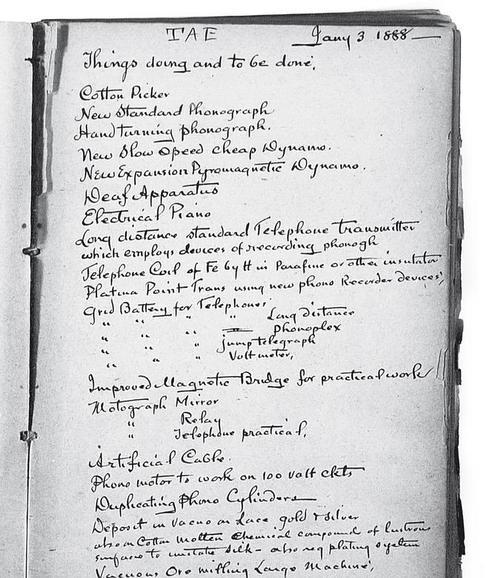 TAE Jany 3 1888
Things doing and to be done.
Cotton Picker
New Standard Phonograph
Hand turning phonograph.
New Slow Speed cheap Dynamo.
New Expansion Pyromagnetic Dynamo.
Deaf Apparatus
Electrical Piano
Long distance standard Telephone Transmitter
which employs devices of recording phonogh
Telephone Coil of Fe by tt in Parafine or other insulator
Platina Point Trans using new phono Recorder devices,
Grid Battery for Telephones
" " " " Long distance
" " " Phonoplex
" " " jump telegraph
" " " Voltmeter,
Improved Magnetic Bridge for practical work
Motograph Mirror
" Relay
" Telephone practical,
Artificial Cable.
Phono motor to work on 100 volt ckts
Duplicating Phono Cylinders
Deposit in vacuo on Lace, gold & silver
also on cotton molten chemical compound of lustrous
surfaces to imitate silk - also reg plating system
Vacuous Ore milling Large Machine,